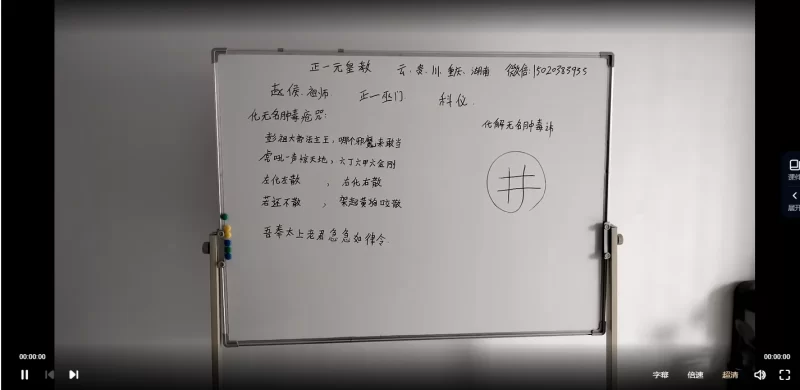 正一元皇教 云、贵、川、重庆、湖南 微信:15020383935
赵侯、祖师 正一巫门 科仪
化无名肿毒疮咒: 化解无名肿毒讳
彭祖大帝法主王,哪个邪魔来敢当
虎吼一声惊天地,六丁六甲六金刚
左化左散 , 右化右散 井
若还不散 , 架起黄狗咬散
吾奉太上老君急急如律令
课件
展开
00:00:00 00:00:00
字幕 倍速 超清